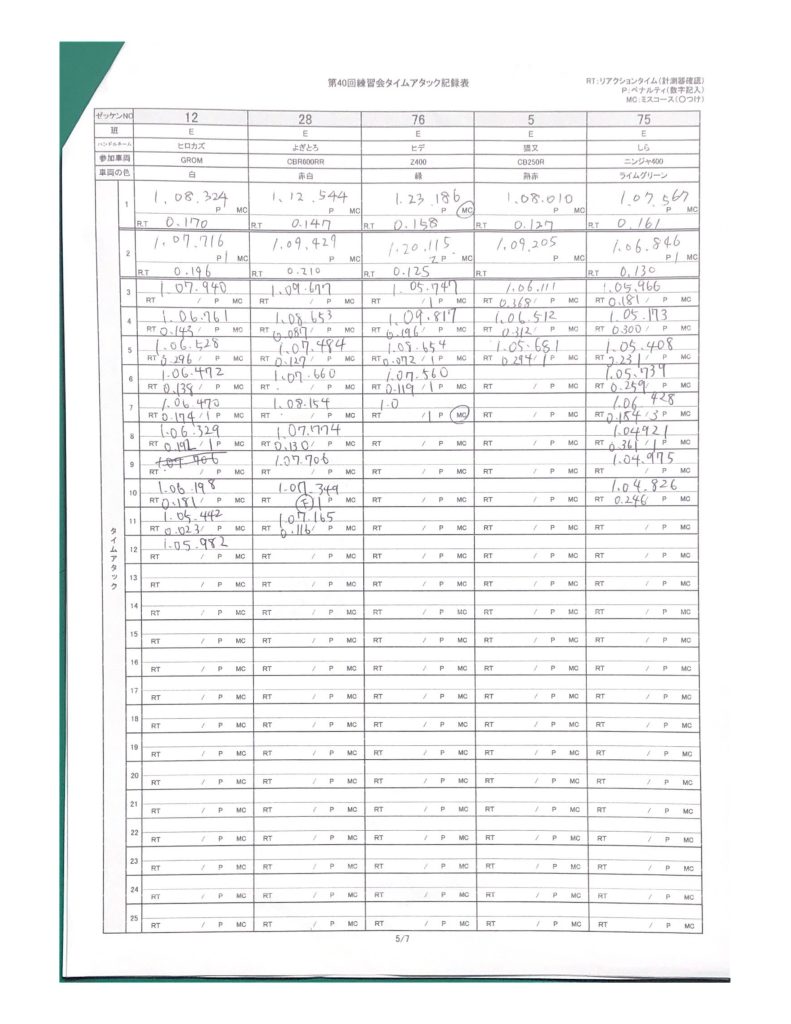 第40回練習会タイムアタック記録表
RT:リアクションタイム(計測器確認)
P:ペナルティ(数字記入)
MC:ミスコース(〇つけ)
ゼッケンNO 12 28 76 5 75
班 E E E E E
ハンドルネーム ヒロカズ よぎとろ ヒデ 猫又 しら
参加車両 GROM CBR600RR Z400 CB250R ニンジャ400
車両の色 白 赤白 緑 熱赤 ライムグリーン
タイムアタック
1 1.08.324 1.12.544 1.23.186 1.08.010 1.07.567
P MC P MC P MC P MC P MC
R.T 0.170 R.T 0.147 R.T 0.158 R.T 0.127 R.T 0.161
2 1.07.716 1.09.427 1.20.115 1.09.205 1.06.846
P 1 MC P MC 2 P MC P MC P 1 MC
R.T 0.196 R.T 0.210 R.T 0.125 R.T R.T 0.130
3 1.07.940 1.09.677 1.05.747 1.06.111 1.05.966
RT / P MC RT / P MC RT / 1 P MC RT 0.368 / P MC RT 0.181 / P MC
4 1.06.761 1.08.653 1.09.817 1.06.512 1.05.173
RT 0.143 / P MC RT 0.087 / P MC RT 0.196 / P MC RT 0.312 / P MC RT 0.300 / P MC
5 1.06.528 1.07.484 1.08.654 1.05.681 1.05.408
RT 0.296 / P MC RT 0.127 / P MC RT 0.072 / 1 P MC RT 0.294 / 1 P MC RT 0.231 / P MC
6 1.06.472 1.07.660 1.07.560 1.05.739
RT 0.138 / P MC RT / P MC RT 0.119 / 1 P MC RT / P MC RT 0.259 / P MC
7 1.06.470 1.08.154 1.0 1.06.428
RT 0.174 / 1 P MC RT / P MC RT / 1 P MC RT / P MC RT 0.184 / 3 P MC
8 1.06.329 1.07.774 1.04921
RT 0.192 / 1 P MC RT 0.130 / P MC RT / P MC RT / P MC RT 0.361 / 1 P MC
9 1.07.706 1.07.706 1.04.975
RT / P MC RT / P MC RT / P MC RT / P MC RT / P MC
10 1.06.198 1.07.349 1.04.826
RT 0.181 / P MC RT F 1 P MC RT / P MC RT / P MC RT 0.246 / P MC
11 1.05.442 1.07.165
RT 0.023 / P MC RT 0.116 / P MC RT / P MC RT / P MC RT / P MC
12 1.05.982
RT / P MC RT / P MC RT / P MC RT / P MC RT / P MC
13
RT / P MC RT / P MC RT / P MC RT / P MC RT / P MC
14
RT / P MC RT / P MC RT / P MC RT / P MC RT / P MC
15
RT / P MC RT / P MC RT / P MC RT / P MC RT / P MC
16
RT / P MC RT / P MC RT / P MC RT / P MC RT / P MC
17
RT / P MC RT / P MC RT / P MC RT / P MC RT / P MC
18
RT / P MC RT / P MC RT / P MC RT / P MC RT / P MC
19
RT / P MC RT / P MC RT / P MC RT / P MC RT / P MC
20
RT / P MC RT / P MC RT / P MC RT / P MC RT / P MC
21
RT / P MC RT / P MC RT / P MC RT / P MC RT / P MC
22
RT / P MC RT / P MC RT / P MC RT / P MC RT / P MC
23
RT / P MC RT / P MC RT / P MC RT / P MC RT / P MC
24
RT / P MC RT / P MC RT / P MC RT / P MC RT / P MC
25
RT / P MC RT / P MC RT / P MC RT / P MC RT / P MC
5/7